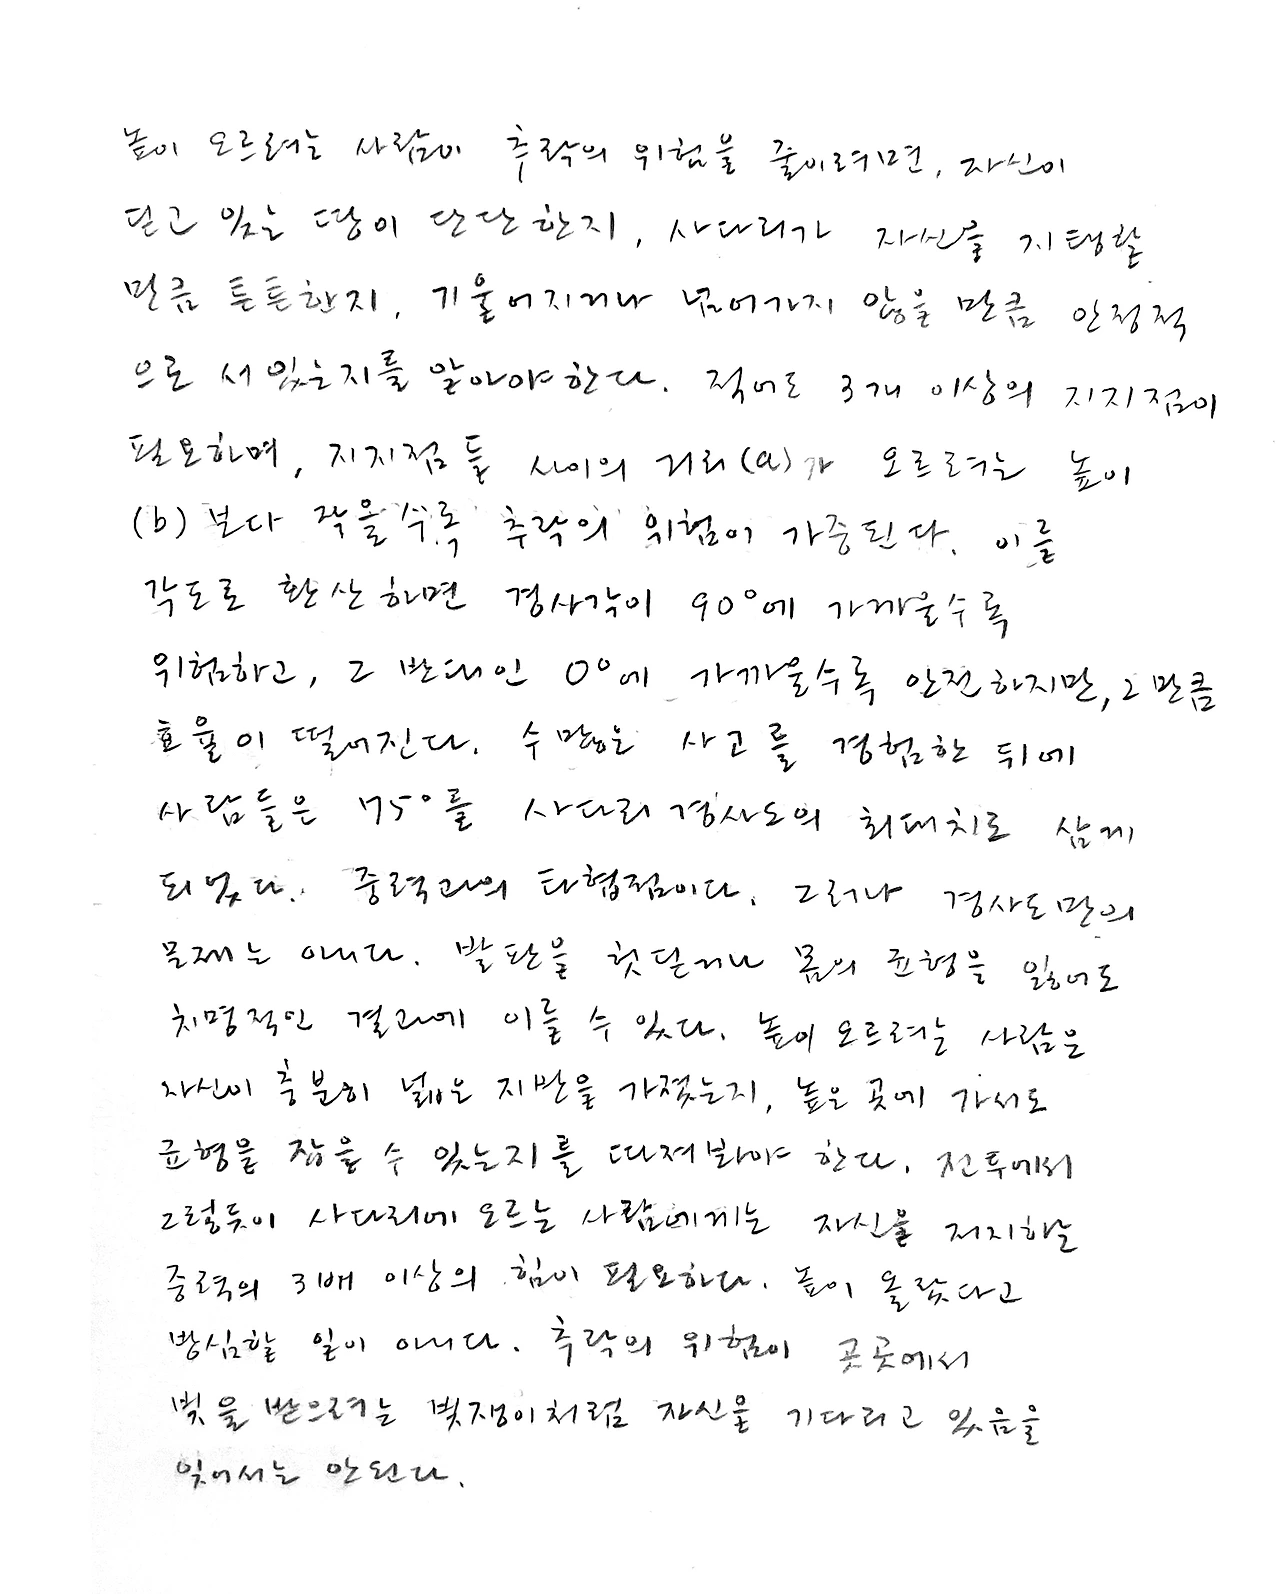 높이 오르려는 사람이 추락의 위험을 줄이려면, 자신이
딛고 있는 땅이 단단한지, 사다리가 자신을 지탱할
만큼 튼튼한지, 기울어지거나 넘어가지 않을 만큼 안정적
으로 서있는지를 알아야한다. 적어도 3개 이상의 지지점이
필요하며, 지지점들 사이의 거리(a)가 오르려는 높이
(b)보다 작을수록 추락의 위험이 가중된다. 이를
각도로 환산하면 경사각이 90°에 가까울수록
위험하고, 그 반대인 0°에 가까울수록 안전하지만, 그만큼
효율이 떨어진다. 수많은 사고를 경험한 뒤에
사람들은 75°를 사다리 경사도의 최대치로 삼게
되었다. 중력과의 타협점이다. 그러나 경사도만의
문제는 아니다. 발판을 헛딛거나 몸의 균형을 잃어도
치명적인 결과에 이를 수 있다. 높이 오르려는 사람은
자신이 충분히 넓은 지반을 가졌는지, 높은 곳에 가서도
균형을 잡을 수 있는지를 따져봐야 한다. 전투에서
그렇듯이 사다리에 오르는 사람에게는 자신을 저지하는
중력의 3배 이상의 힘이 필요하다. 높이 올랐다고
방심할 일이 아니다. 추락의 위험이 곳곳에서
빚을 받으려는 빚쟁이처럼 자신을 기다리고 있음을
잊어서는 안된다.